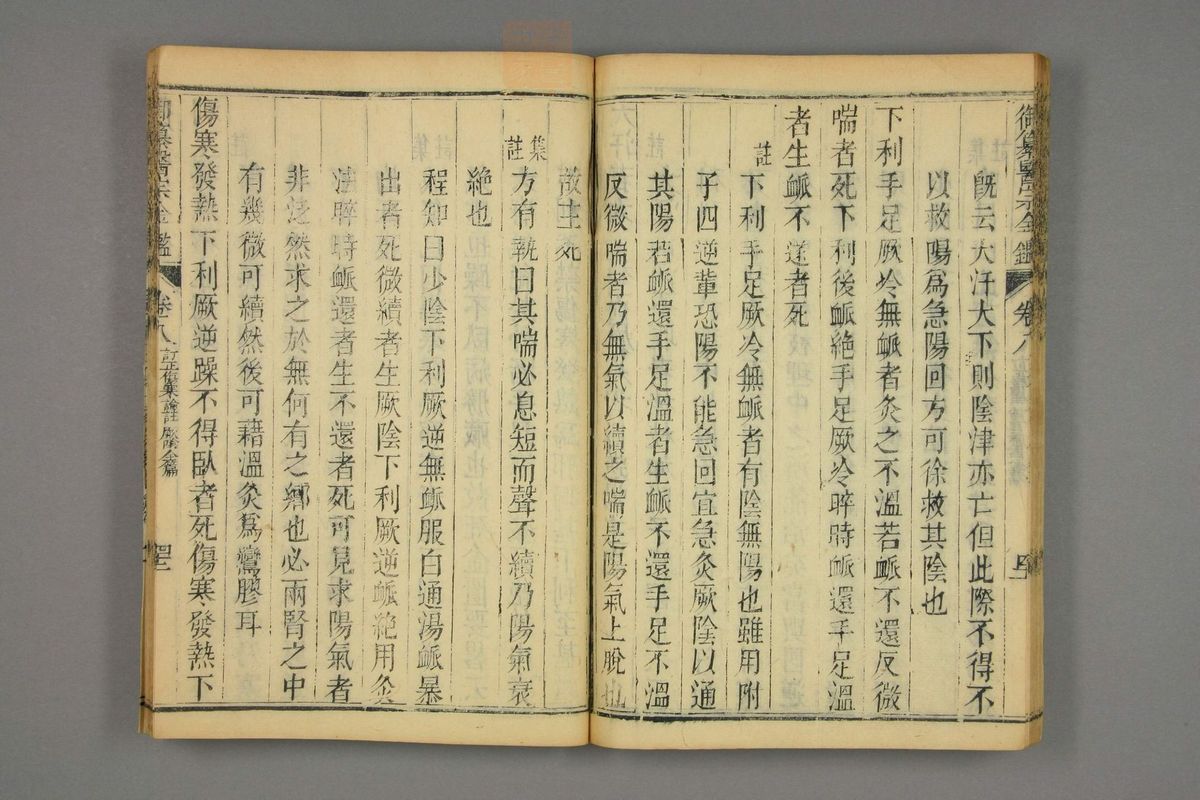 御纂醫宗金鑑 卷八
既云大汗大下則陰津亦亡但此際不得不
以救陽爲急陽回方可徐救其陰也
下利手足厥冷無脈者灸之不溫若脈不還反微
喘者死下利後脈絶手足厥冷晬時脈還手足溫
者生脈不還者死
註
下利手足厥冷無脈者有陰無陽也雖用附
子四逆輩恐陽不能急回宜急灸厥陰以通
其陽若脈還手足溫者生脈不還手足不溫
反微喘者乃無氣以續之喘是陽氣上脫也
故主死
集註
方有執曰其喘必息短而聲不續乃陽氣衰
絶也
程知曰少陰下利厥逆無脈服白通湯脈暴
出者死微續者生厥陰下利厥逆脈絶用灸
法晬時脈還者生不還者死可見求陽氣者
非泛然求之於無何有之鄉也必兩腎之中
有幾微可續然後可藉溫灸爲鸞膠耳
傷寒發熱下利厥逆躁不得臥者死傷寒發熱下
御纂醫宗金鑑 卷八 訂正傷寒論註 厥陰全篇